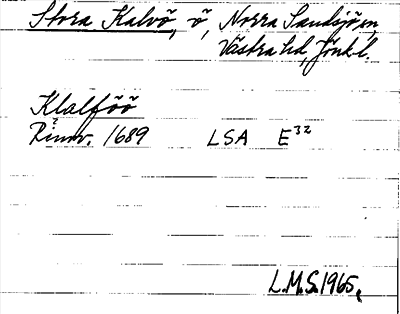 Stora Kalvö, ö, Norra Sandsjö sn,
Västra hd, Jönk. l.
Klalföö
Rinnv. 1689 LSA E32
L.M.S. 1965.